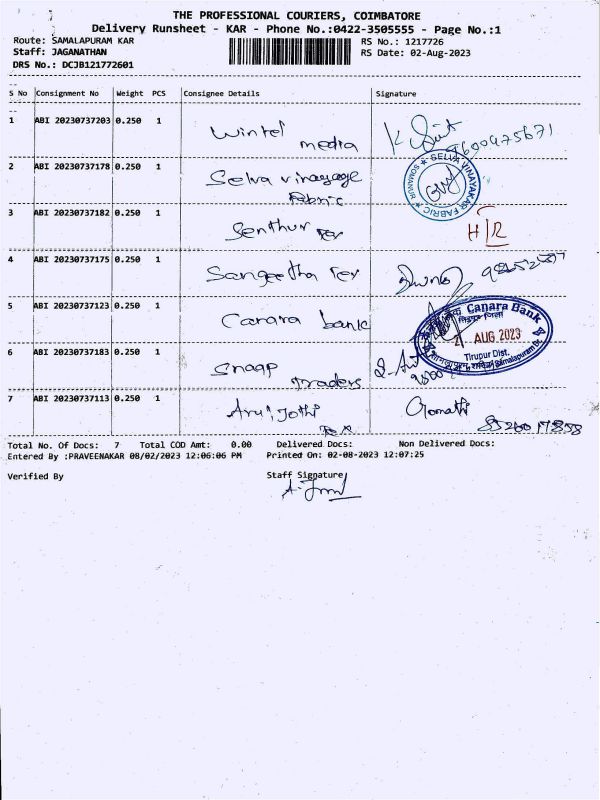 THE PROFESSIONAL COURIERS, COIMBATORE
Delivery Runsheet - KAR - Phone No.:0422-3505555 - Page No.:1
Route: SAMALAPURAM KAR
RS No.: 1217726
Staff: JAGANATHAN
RS Date: 02-Aug-2023
DRS No.: DCJB121772601
S No Consignment No Weight PCS Consignee Details Signature
1 ABI 20230737203 0.250 1 Wintel media 9600475671
2 ABI 20230737178 0.250 1 Selva vinayaga Fabric
SELVA VINAYAKAR FABRIC SOMANUR
3 ABI 20230737182 0.250 1 Senthur Tex H/R
4 ABI 20230737175 0.250 1 Sangeetha Tex
5 ABI 20230737123 0.250 1 Canara bank
Canara Bank
2 AUG 2023
Tirupur Dist.
Samalapuram Br.
6 ABI 20230737183 0.250 1 Snaap Traders
7 ABI 20230737113 0.250 1 Arul Jothi Tex Gomathi
Total No. Of Docs: 7 Total COD Amt: 0.00 Delivered Docs: Non Delivered Docs:
Entered By :PRAVEENAKAR 08/02/2023 12:06:06 PM Printed On: 02-08-2023 12:07:25
Verified By Staff Signature